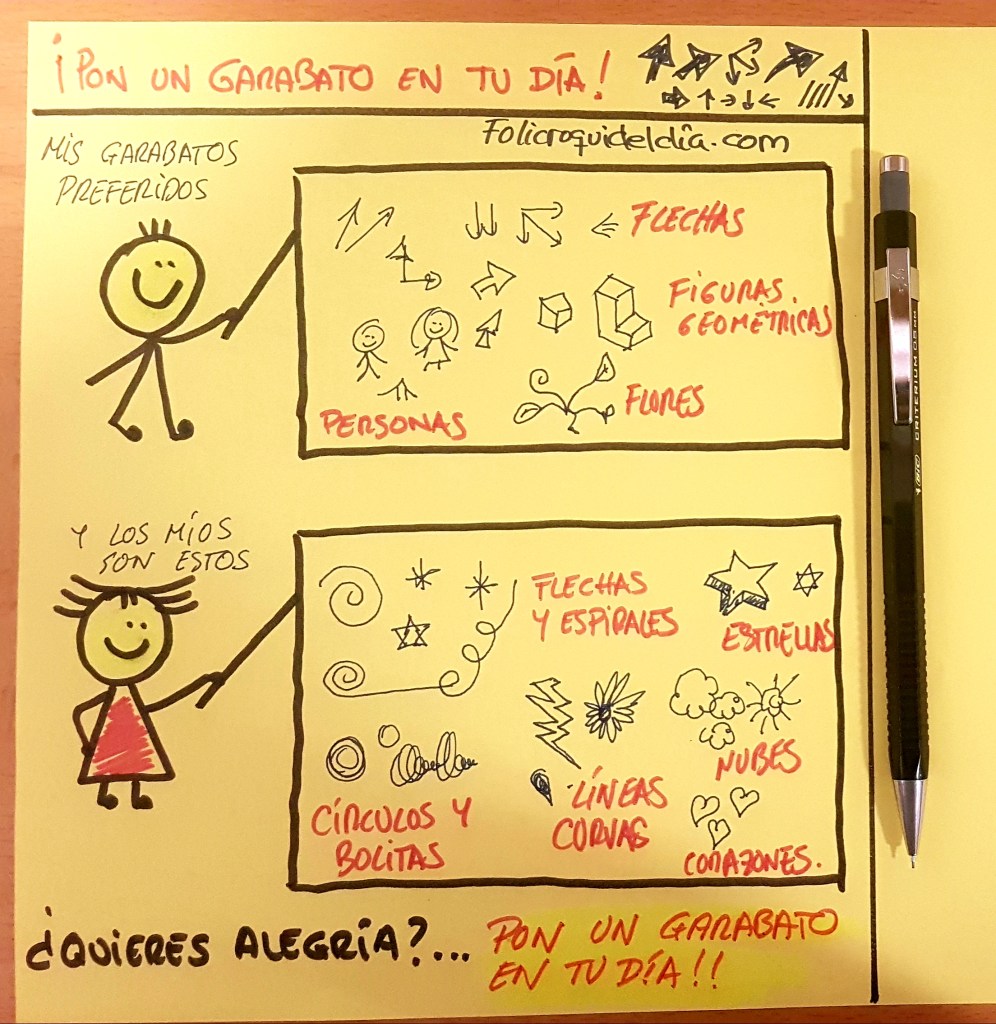 ¡PON UN GARABATO EN TU DÍA!
Folicroquideldía.com
MIS GARABATOS
PREFERIDOS
FLECHAS
FIGURAS.
GEOMÈTRICAS
FLORES
PERSONAS
Y LOS MÍOS
SON ESTOS
FLECHAS
Y ESPIRALES
ESTRELLAS
NUBES
LÍNEAS
CURVAS
CÍRCULOS Y
BOLITAS
CORAZONES.
¿QUIERES ALEGRÍA?...
PON UN GARABATO
EN TU DÍA!!
BIC CRITERIUM 0.5 MM